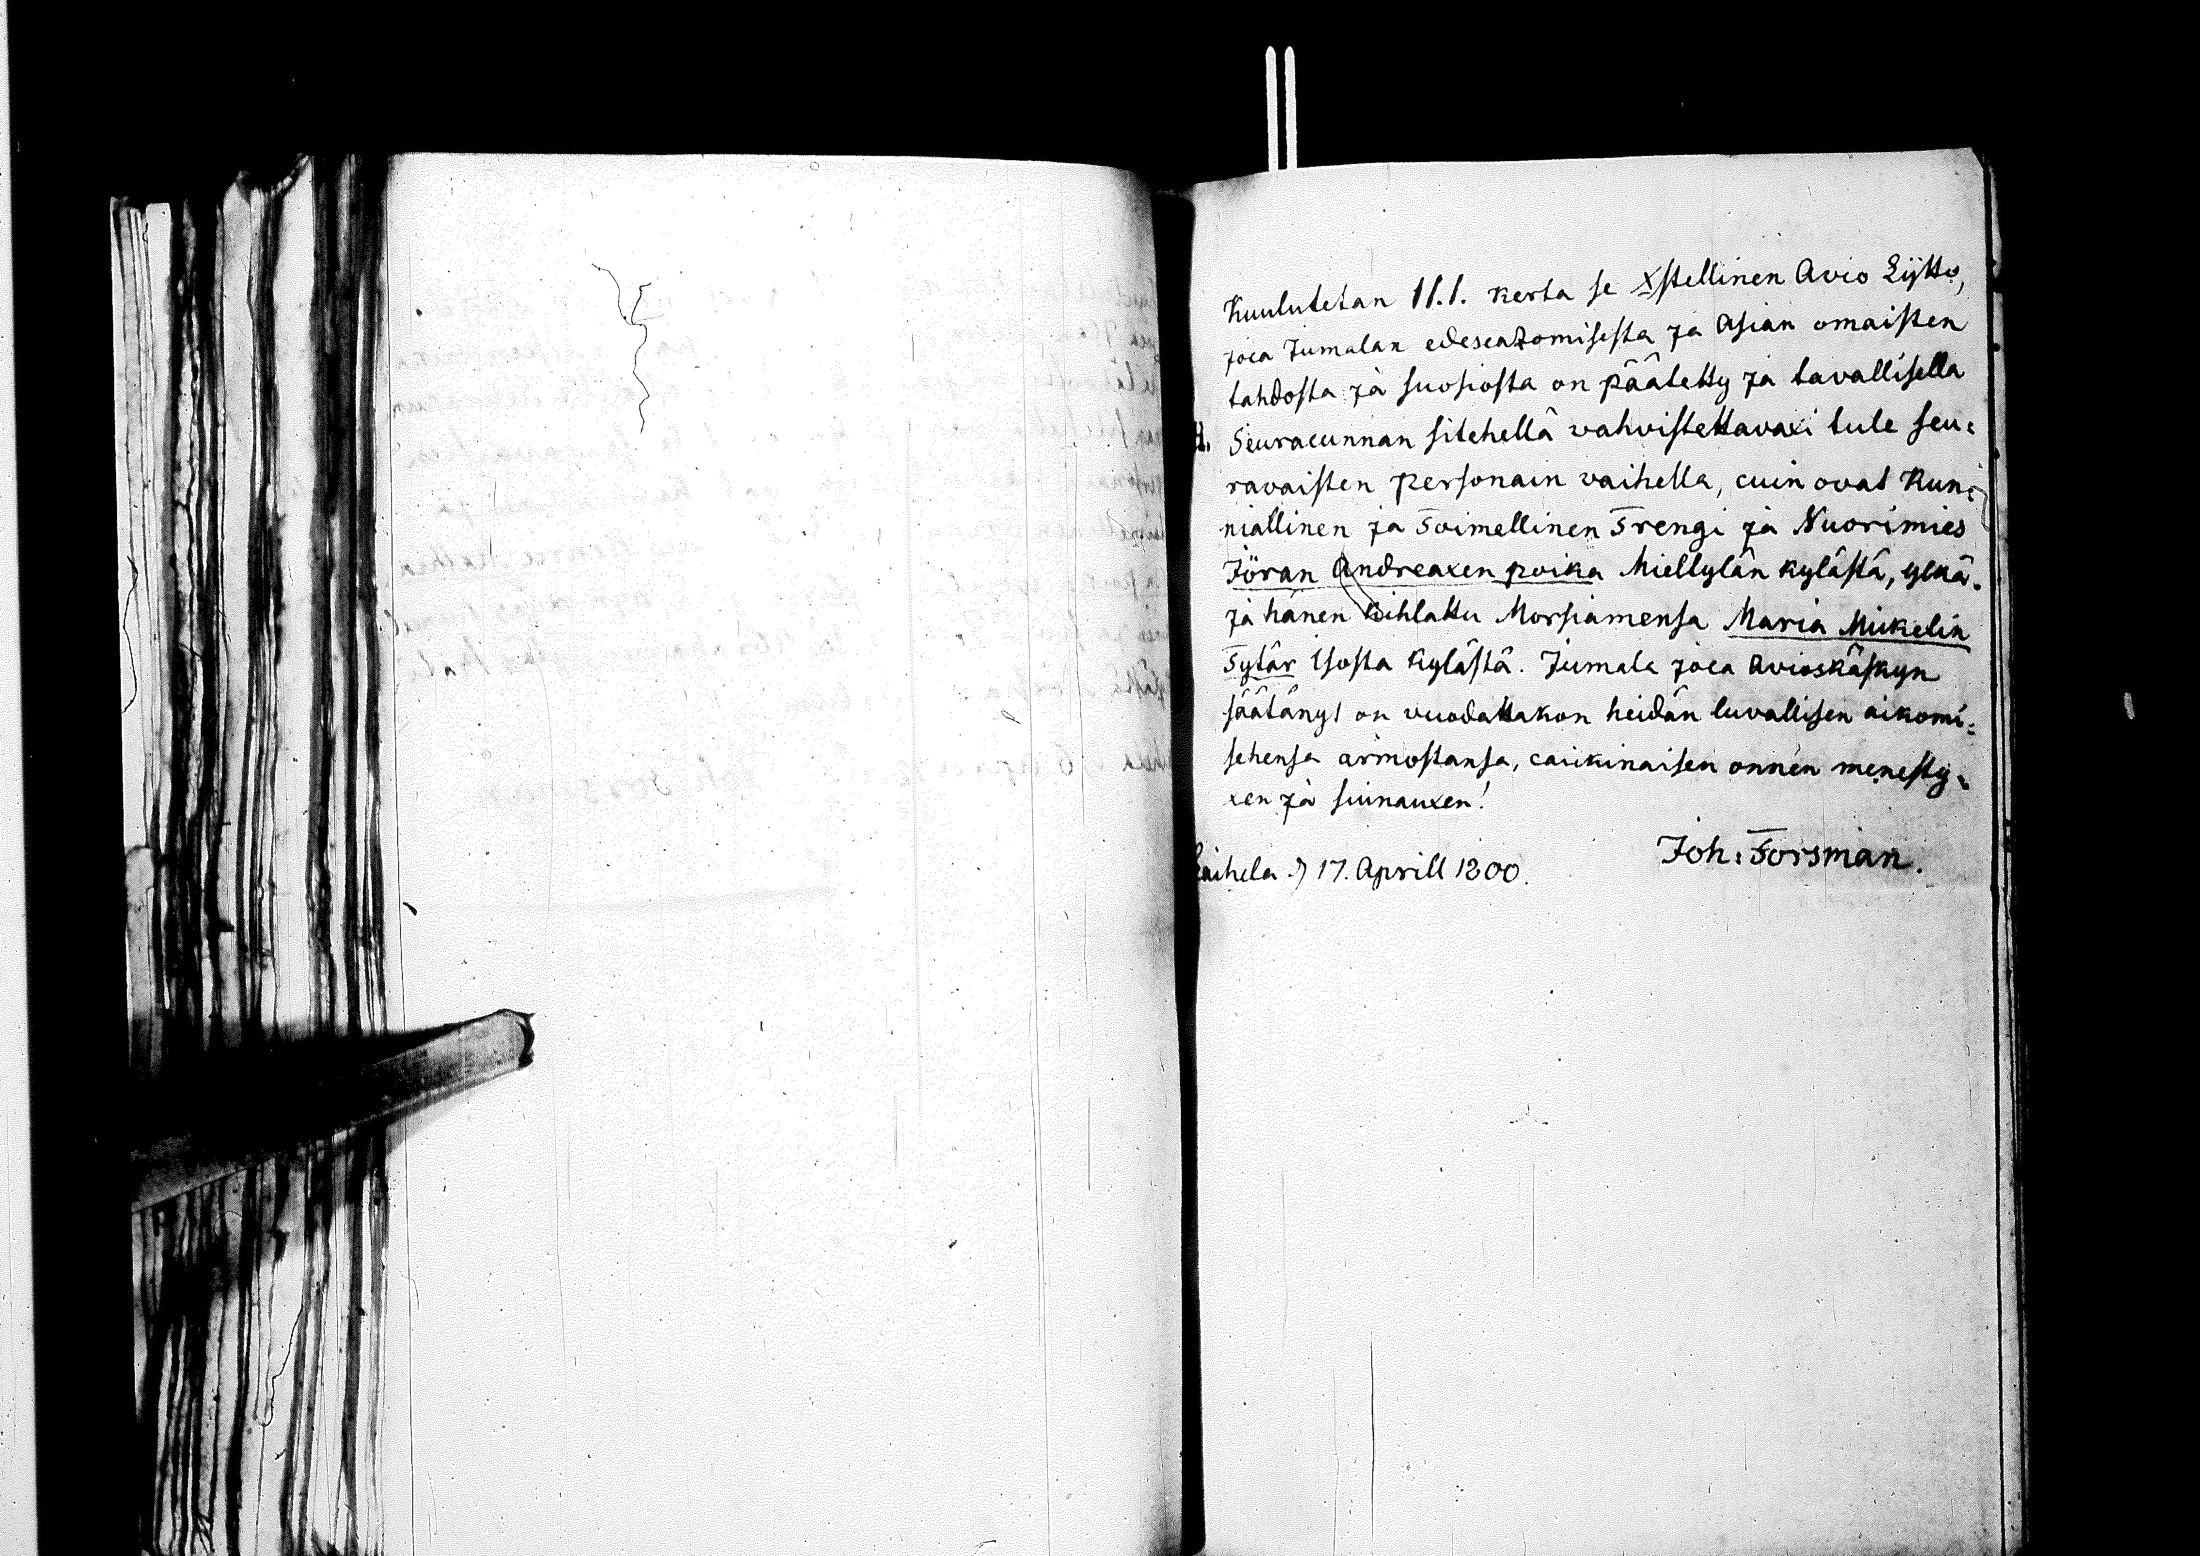 Kuulutetan 11.1. kerta se Xstellinen Avio Lijtto,
joca Jumalan edescatzomisesta ja Asian omaisten
tahdosta ja suosiosta on päätetty ja tavallisella
Seuracunnan sitehellä vahvistettavaxi tule seu:
ravaisten personain vaihella, cuin ovat Kun:
niallinen ja Toimellinen Trengi ja Nuorimies
Jöran Andreaxen poika Miellylän kylästä, ylkä.
ja hänen kihlattu Morsiamensa Maria Mickelin
Tytär Isosta kylästä. Jumala joca Avioskäskyn
säätänyt on vuodattakon heidän luvallisen aikomi:
sehensa armostansa, caickinaisen onnen menesty:
xen ja siunauxen!
Joh: Forsman.
Laihela d 17. Aprill 1800.